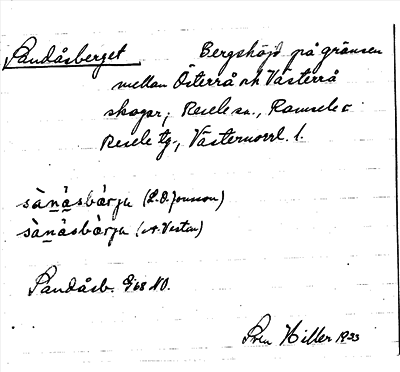 Sandåsberget Bergshöjd på gränsen
mellan Österrå och Västerrå
skogar, Resele sn., Ramsele o
Resele tg., Västernorrl. l.
sànåsbàrju (L.O. Jonsson)
sànåsbàrju (A. Vestin)
Sandåsb. G:68 NO.
Sven Hiller 1933